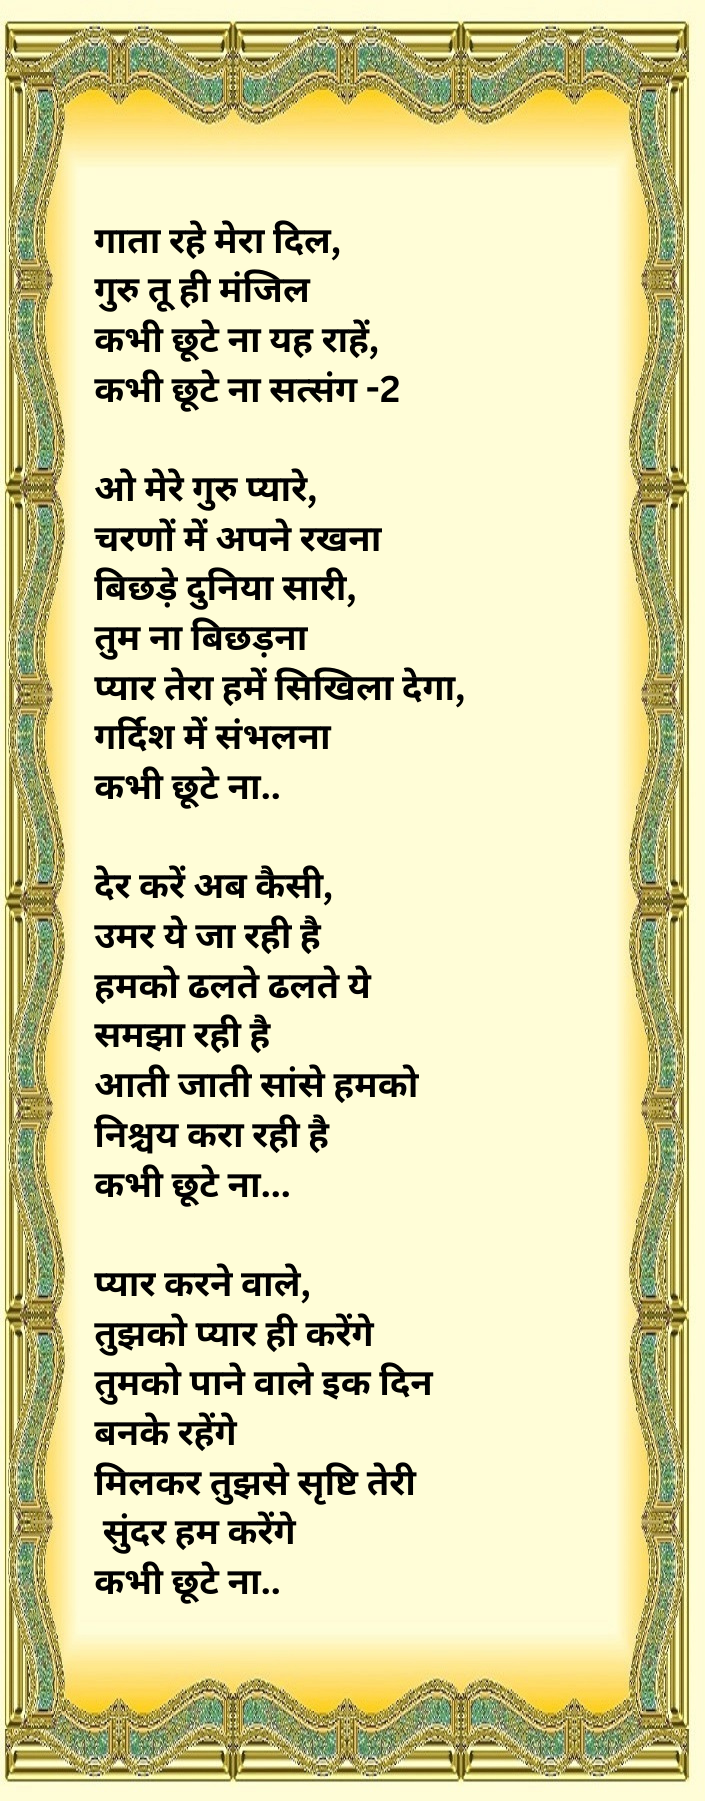 गाता रहे मेरा दिल,
गुरु तू ही मंजिल
कभी छूटे ना यह राहें,
कभी छूटे ना सत्संग -2
ओ मेरे गुरु प्यारे,
चरणों में अपने रखना
बिछड़े दुनिया सारी,
तुम ना बिछड़ना
प्यार तेरा हमें सिखिला देगा,
गर्दिश में संभलना
कभी छूटे ना..
देर करें अब कैसी,
उमर ये जा रही है
हमको ढलते ढलते ये
समझा रही है
आती जाती सांसे हमको
निश्चय करा रही है
कभी छूटे ना...
प्यार करने वाले,
तुझको प्यार ही करेंगे
तुमको पाने वाले इक दिन
बनके रहेंगे
मिलकर तुझसे सृष्टि तेरी
सुंदर हम करेंगे
कभी छूटे ना..